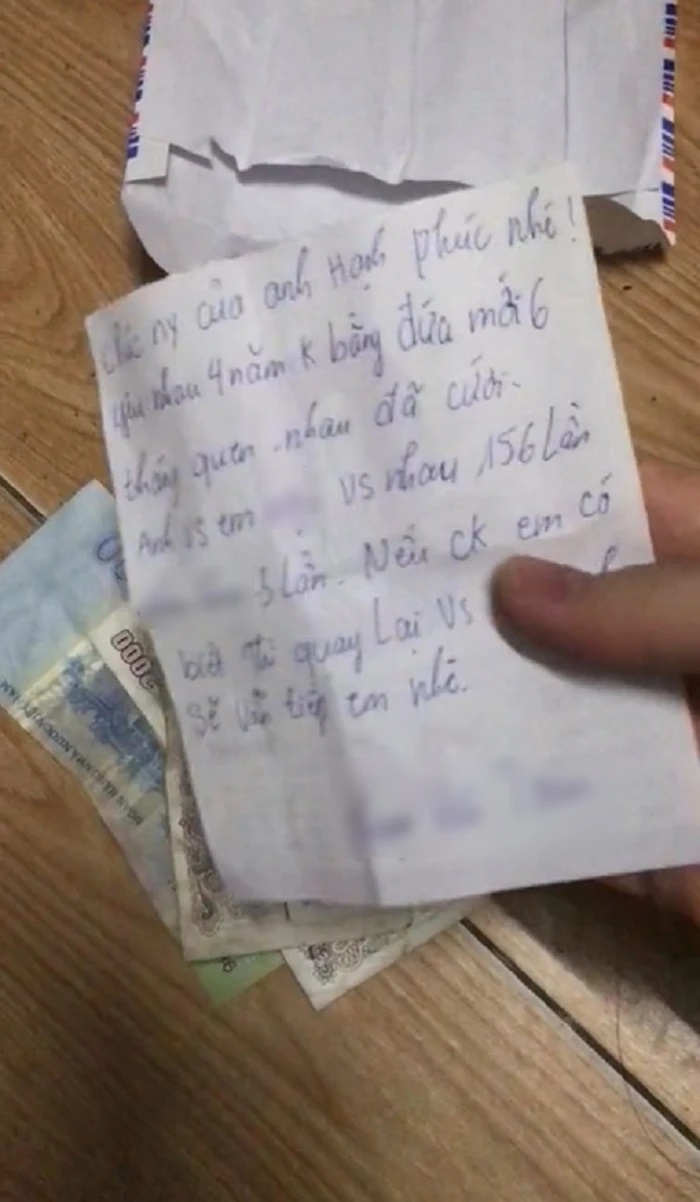 Chúc ny của anh Hạnh phúc nhé!
yêu nhau 4 năm k bằng đứa mới 6
tháng quen nhau đã cưới.
Anh vs em vs nhau 156 lần
lần. Nếu ck em có
biết thì quay Lại Vs
sẽ vẫn tiếp em nhé.
2000
NGÂN HÀNG NHÀ NƯỚC VIỆT NAM